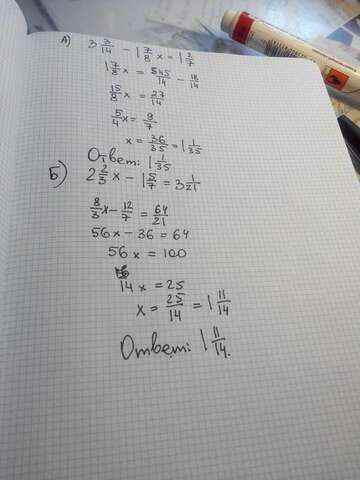 А) 3 3/14 - 1 7/8 x = 1 2/7
1 7/8 x = 545/14 - 18/14
15/8 x = 27/14
5/4 x = 9/7
x = 36/35 = 1 1/35
Ответ: 1 1/35
Б) 2 2/3 x - 1 5/7 = 3 1/21
8/3 x - 12/7 = 64/21
56x - 36 = 64
56x = 100
14x = 25
x = 25/14 = 1 11/14
Ответ: 1 11/14.